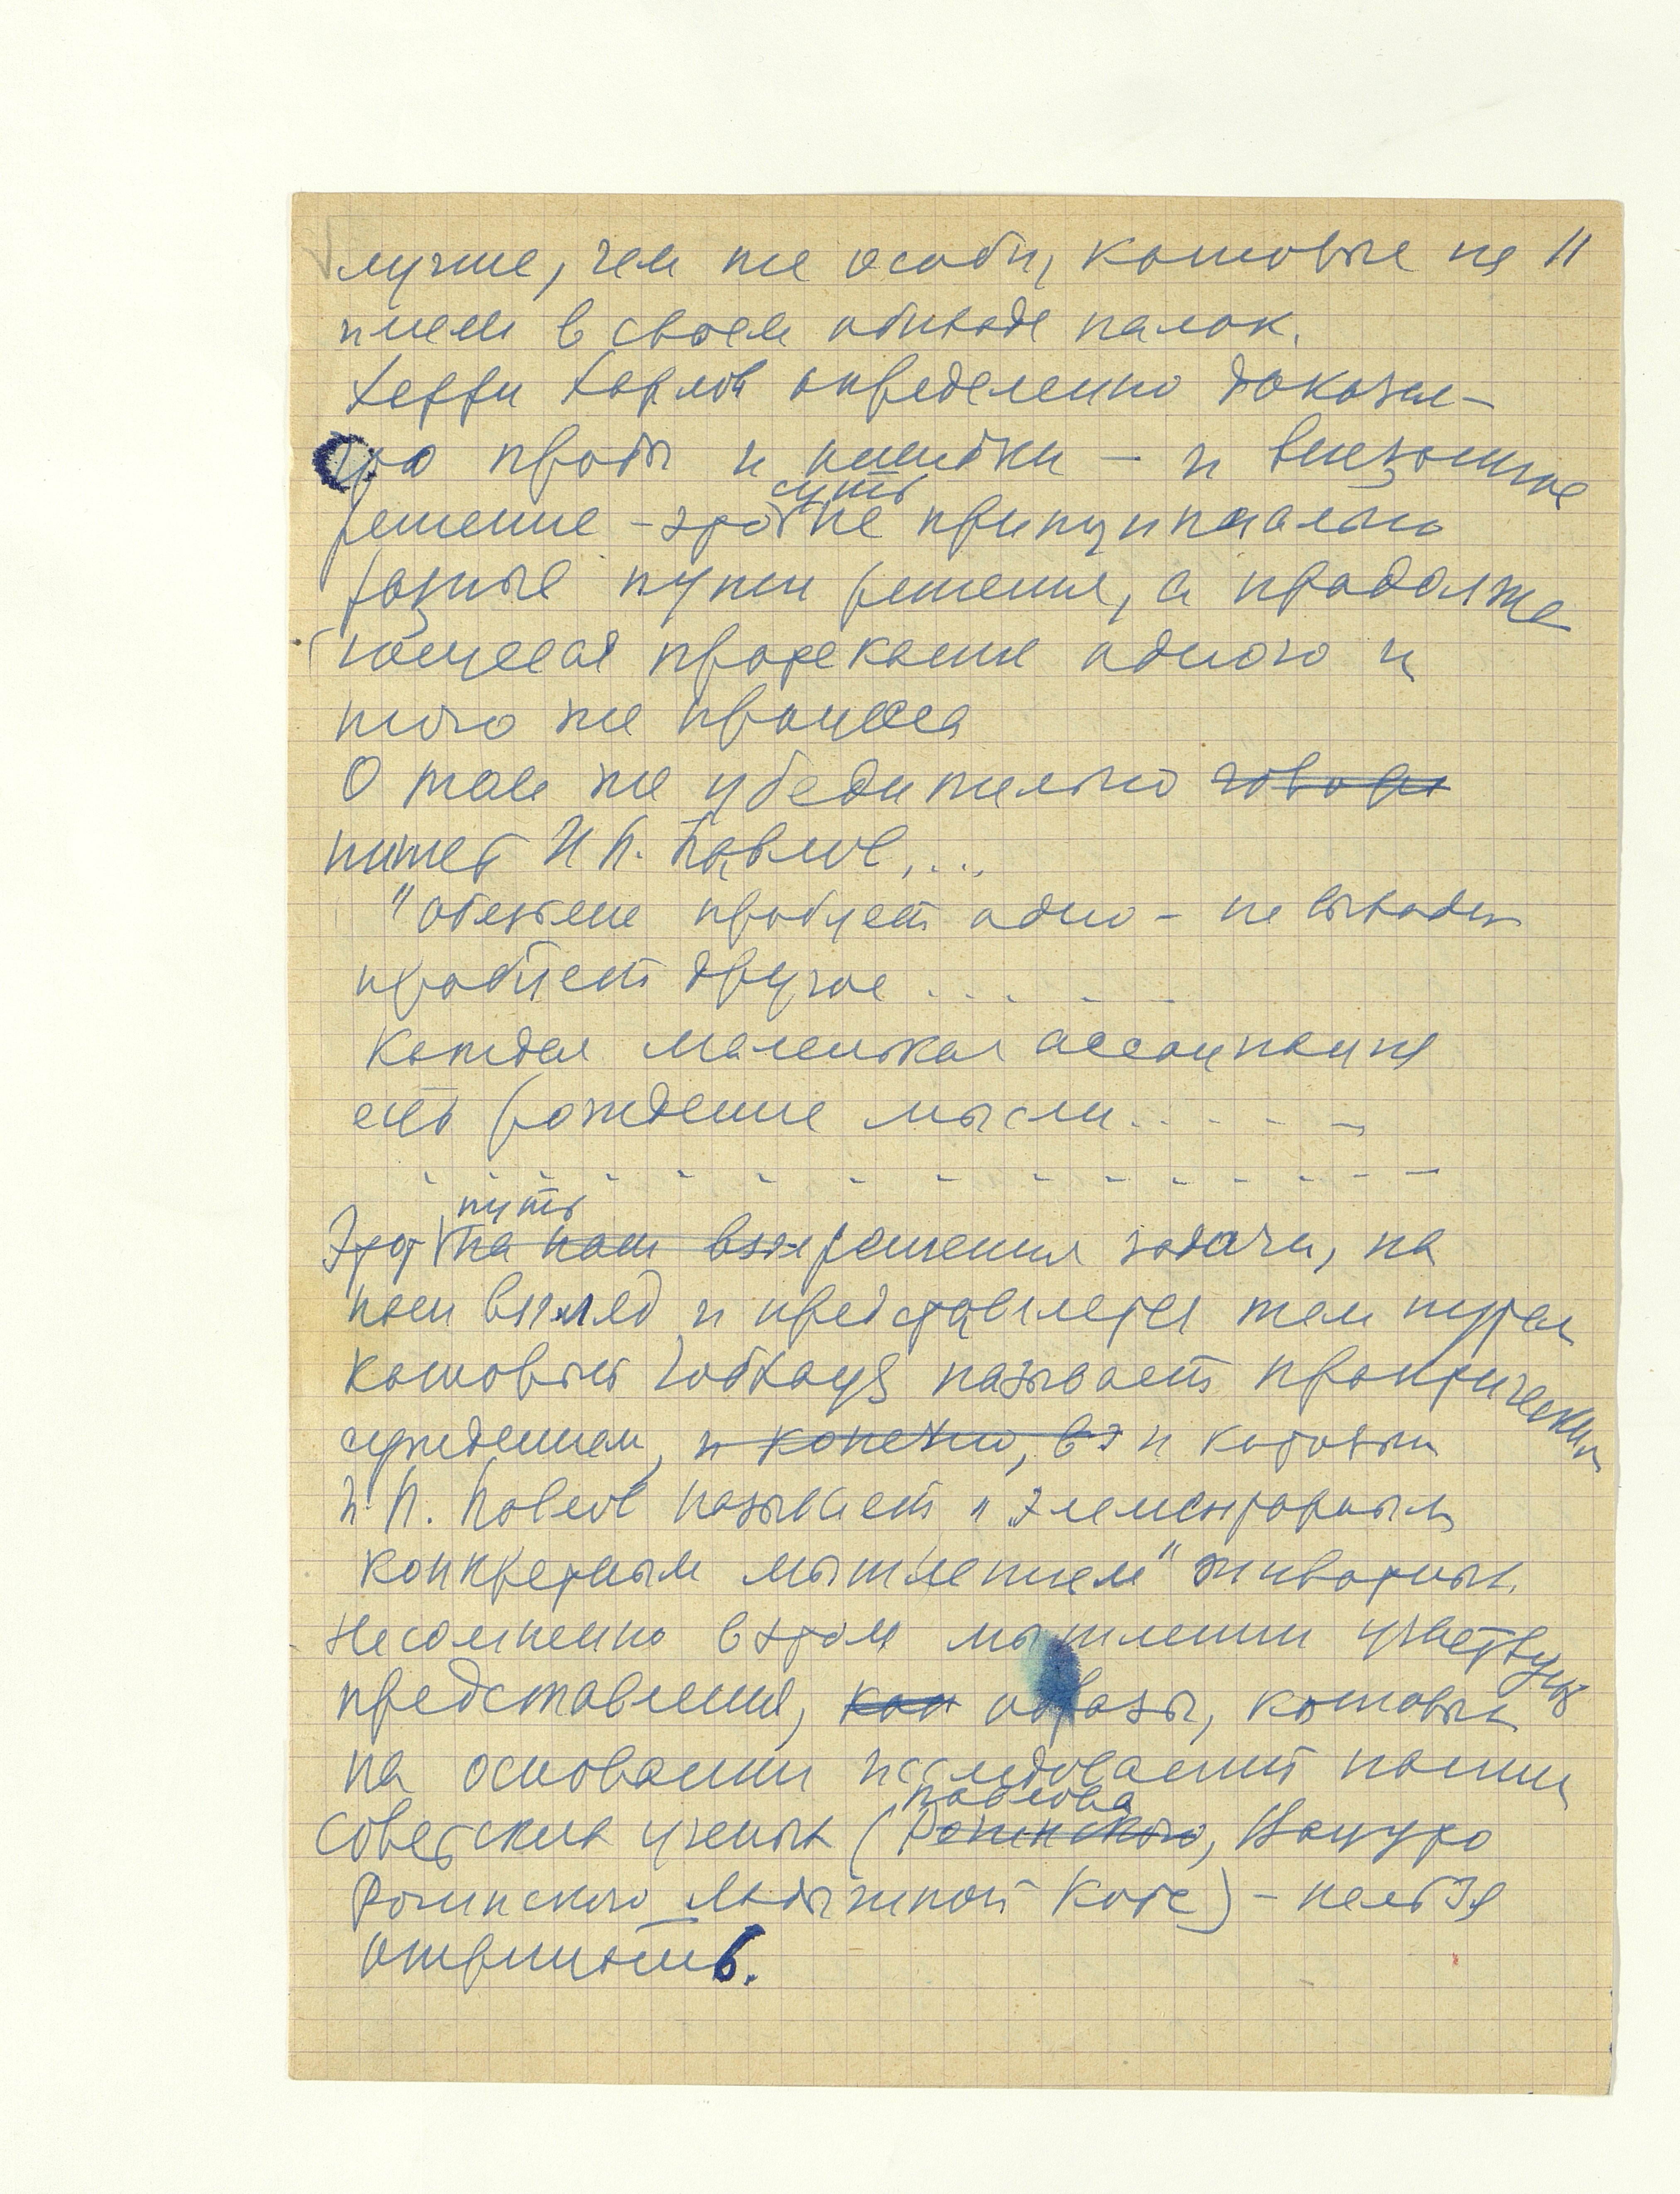 лучше, чем те особи, которые не 11
имели в своем обиходе палок.
Херри Харлов определенно доказал –
что пробы и ошибки – и внезапное
решение – это суть не принципиально
разные пути решения, а продолжа
ющееся протекание одного и
того же процесса
О том же убедительно говори
пишет И П. Павлов, ...
"обезьяна пробует одно – не выходит
пробует другое . . . . .
Каждая маленькая ассоциация
есть рождение мысли . . . . .
Этот путь на наш взгл решения задачи, на
наш взгляд и представляется тем путем
который Гобхауз называет практическим
суждением, и конечно, в э и который
И. П. Павлов называет "элементарным
конкретным мышлением" животных.
Несомненно в этом мышлении участвуют
представления, как образы, которых
на основании исследований наших
советских ученых (Рогинского, Павлова Вацуро
Рогинского Ладыгиной Котс) – нельзя
отрицать.